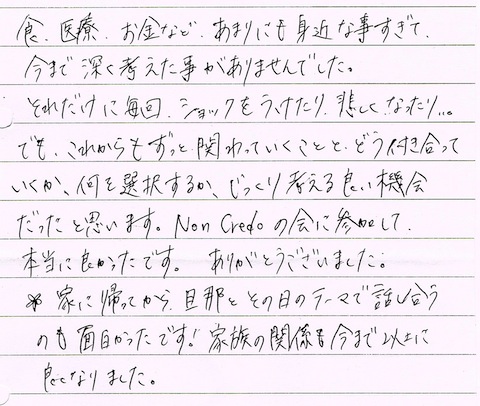 食、医療、お金など、あまりにも身近な事すぎて、
今まで深く考えた事がありませんでした。
それだけに毎回、ショックをうけたり、悲しくなったり…。
でも、これからもずっと関わっていくことと、どう付き合って
いくか、何を選択するか、じっくり考える良い機会
だったと思います。Non Credoの会に参加して、
本当に良かったです。ありがとうございました。
* 家に帰ってから、旦那とその日のテーマで話し合う
のも面白かったです!家族の関係も今まで以上に
良くなりました。